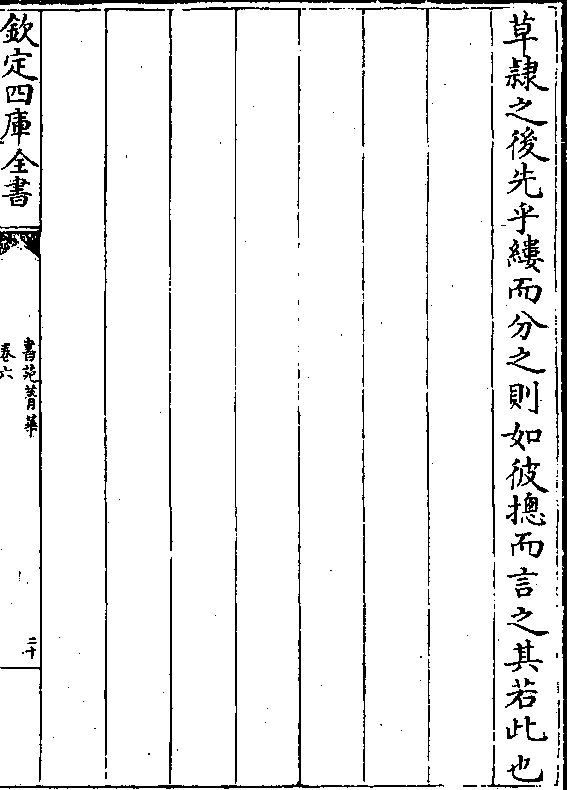 草隸之後先乎縷而分之則如彼摠而言之其若此也
欽定四庫全書
書苑菁華
卷六
二十